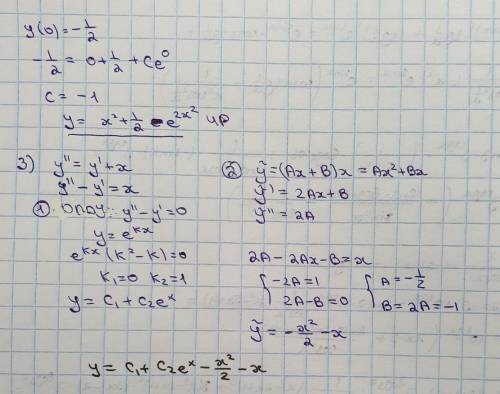 y(0) = -1/2
-1/2 = 0 + 1/2 + Ce⁰
c = -1
y = x² + 1/2 - e^(2x²) ЧР
3) y'' = y' + x
y'' - y' = x
① ОЛОДУ: y'' - y' = 0
y = e^(kx)
e^(kx) (k² - k) = 0
k₁ = 0 k₂ = 1
y = C₁ + C₂eˣ
② ỹ = (Ax + B)x = Ax² + Bx
ỹ' = 2Ax + B
ỹ'' = 2A
2A - 2Ax - B = x
{ -2A = 1 { A = -1/2
2A - B = 0 B = 2A = -1
ỹ = -x²/2 - x
y = C₁ + C₂eˣ - x²/2 - x